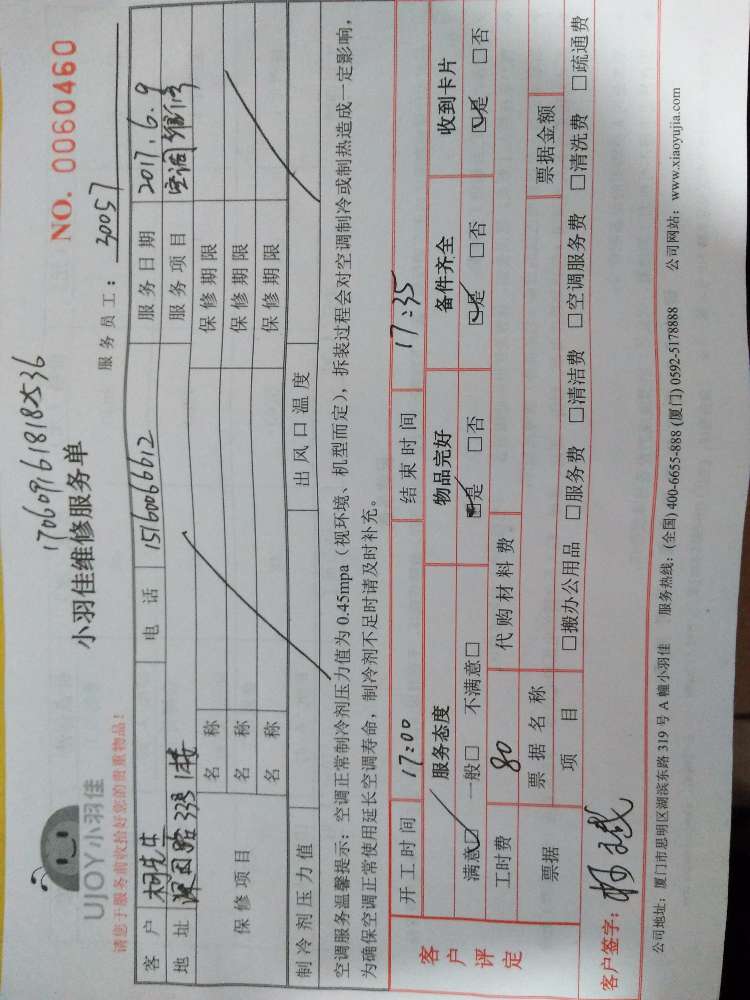 1706091618182536
UJOY小羽佳
小羽佳维修服务单
NO. 0060460
请您于服务前收拾好您的贵重物品！
服务员工： 30057
客户 柯先生 电话 15160066612 服务日期 2017.6.9
地址 路333 1楼 服务项目 空调维修
保修项目 名称 保修期限
名称 保修期限
名称 保修期限
制冷剂压力值 出风口温度
空调服务温馨提示：空调正常制冷剂压力值为 0.45mpa（视环境、机型而定），拆装过程会对空调制冷或制热造成一定影响，
为确保空调正常使用延长空调寿命，制冷剂不足时请及时补充。
客户评定
开工时间 17:00 结束时间 17:35
服务态度 物品完好 备件齐全 收到卡片
满意☑ 一般□ 不满意□ ☑是 □否 ☑是 □否 ☑是 □否
工时费 80 代购材料费
票据 票据名称 票据金额
项目 □搬办公用品 □服务费 □清洁费 □空调服务费 □清洗费 □疏通费
客户签字：
公司地址：厦门市思明区湖滨东路 319 号 A 幢小羽佳 服务热线：(全国) 400-6655-888 (厦门) 0592-5178888 公司网站：www.xiaoyujia.com